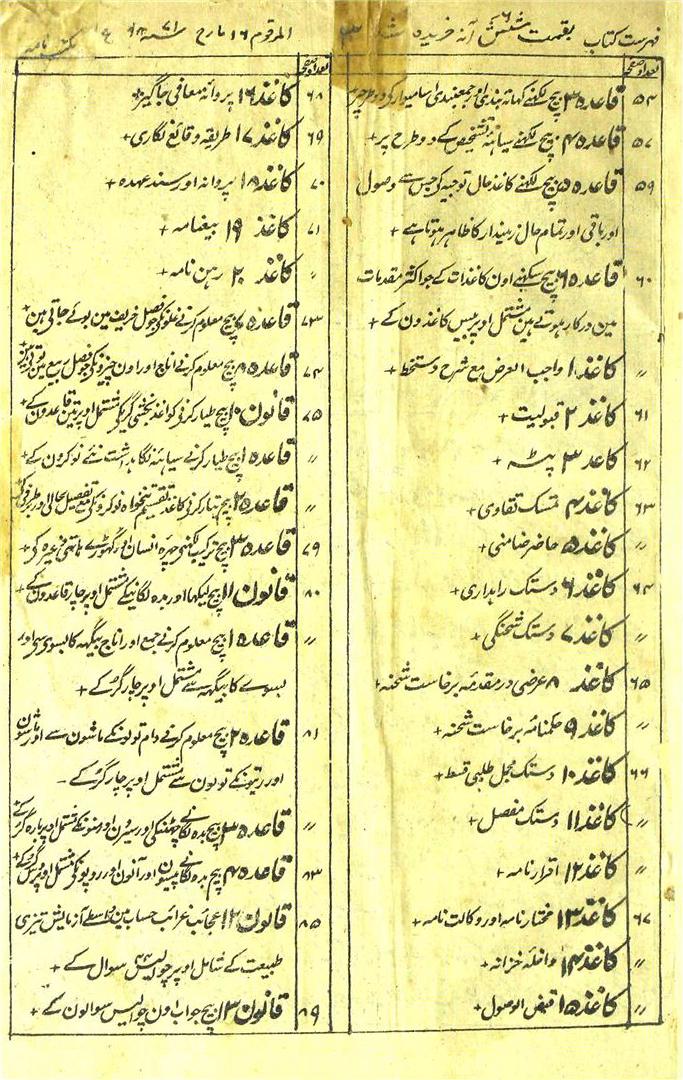 فہرست کتاب بقیمت شش آنہ خریدہ شد
المرقوم ۱۶ مارچ
تعداد صفحہ
۵۴ قاعدہ ۳ بیچ لکھنے کھاتہ بندی اور جمعبندی اسامیوار کی دو طرح پر
۵۷ قاعدہ ۴ بیچ لکھنے سیاہہ تشخیص کے دو طرح پر +
۵۹ قاعدہ ۵ بیچ لکھنے کاغذ حال توجیہ کی جس سے وصول
اور باقی اور تمام حال زمیندار کا ظاہر ہوتا ہے +
۶۰ قاعدہ ۶ بیچ سیکھنے اون کاغذات کے جو اکثر مقدمات
مین درکار ہوتے ہین مشتمل اوپر بیس کاغذون کے +
〃 کاغذ ۱ واجب العرض مع شرح دستخط +
۶۱ کاغذ ۲ قبولیت +
۶۲ کاغذ ۳ پٹہ +
۶۳ کاغذ ۴ تمسک تقاوی +
〃 کاغذ ۵ حاضر ضامنی +
۶۴ کاغذ ۶ دستک راہداری +
〃 کاغذ ۷ دستک شحنگی +
۶۵ کاغذ ۸ عرضی در مقدمہ برخاست شحنہ +
〃 کاغذ ۹ حکمنامہ برخاست شحنہ +
۶۶ کاغذ ۱۰ دستک مجمل طلبی قسط +
〃 کاغذ ۱۱ دستک مفصل +
〃 کاغذ ۱۲ اقرار نامہ +
۶۷ کاغذ ۱۳ مختار نامہ اور وکالت نامہ +
〃 کاغذ ۱۴ داخلہ خزانہ +
〃 کاغذ ۱۵ قبض الوصول +
تعداد صفحہ
۶۸ کاغذ ۱۶ پروانہ معافی جاگیر +
۶۹ کاغذ ۱۷ طریقہ وقائع نگاری +
۷۰ کاغذ ۱۸ پروانہ اور سند عہدہ +
۷۱ کاغذ ۱۹ بیعنامہ +
〃 کاغذ ۲۰ رہن نامہ +
۷۳ قاعدہ ۷ بیچ معلوم کرنے غلو کی جو فصل خریف مین بوئے جاتی ہین +
۷۴ قاعدہ ۸ بیچ معلوم کرنے اناج اور اون چیزو کی جو فصل ربیع مین
۷۵ قانون ۱۰ بیچ طیار کرنی کواغذ بخشی گری کی مشتمل اوپر تین قاعدون کے +
〃 قاعدہ ۱ بیچ طیار کرنے سیاہہ نگاہداشت نئے نوکرون کے +
〃 قاعدہ ۲ بیچ تیار کرنی کاغذ تقسیم تنخواہ نوکرو نکی مع تفصیل بحالی و برطرفی
۷۹ قاعدہ ۳ بیچ ترکیب لکھنی چہرہ انسان اور گھوڑے ہاتھی وغیرہ کی +
۸۰ قانون ۱۱ بیچ لیکھا اور بدہ لگانیکے مشتمل اوپر چار قاعدون کے +
〃 قاعدہ ۱ بیچ معلوم کرنے جمع اور اناج بیگہہ کا بسوی سی اور
بسوے کا بیگہہ سے مشتمل اوپر چار گر کے +
۸۱ قاعدہ ۲ بیچ معلوم کرنے دام تولونکے ماشون سے اور ماشون
اور رتیونکے تولون سے مشتمل اوپر چار گر کے -
〃 قاعدہ ۳ بیچ بدہ لگانے چھٹنکی اور سیرون اور منونکے مشتمل اوپر بارہ گر کے
۸۳ قاعدہ ۴ بیچ بدہ لگانے پیسون اور آنون اور روپونکی مشتمل اوپر
۸۵ قانون ۱۲ عجائب غرائب حساب مین واسطے آزمایش تیزی
طبیعت کے شامل اوپر چوالیس سوال کے +
۸۹ قانون ۱۳ بیچ جواب اون چوالیس سوالون کے +